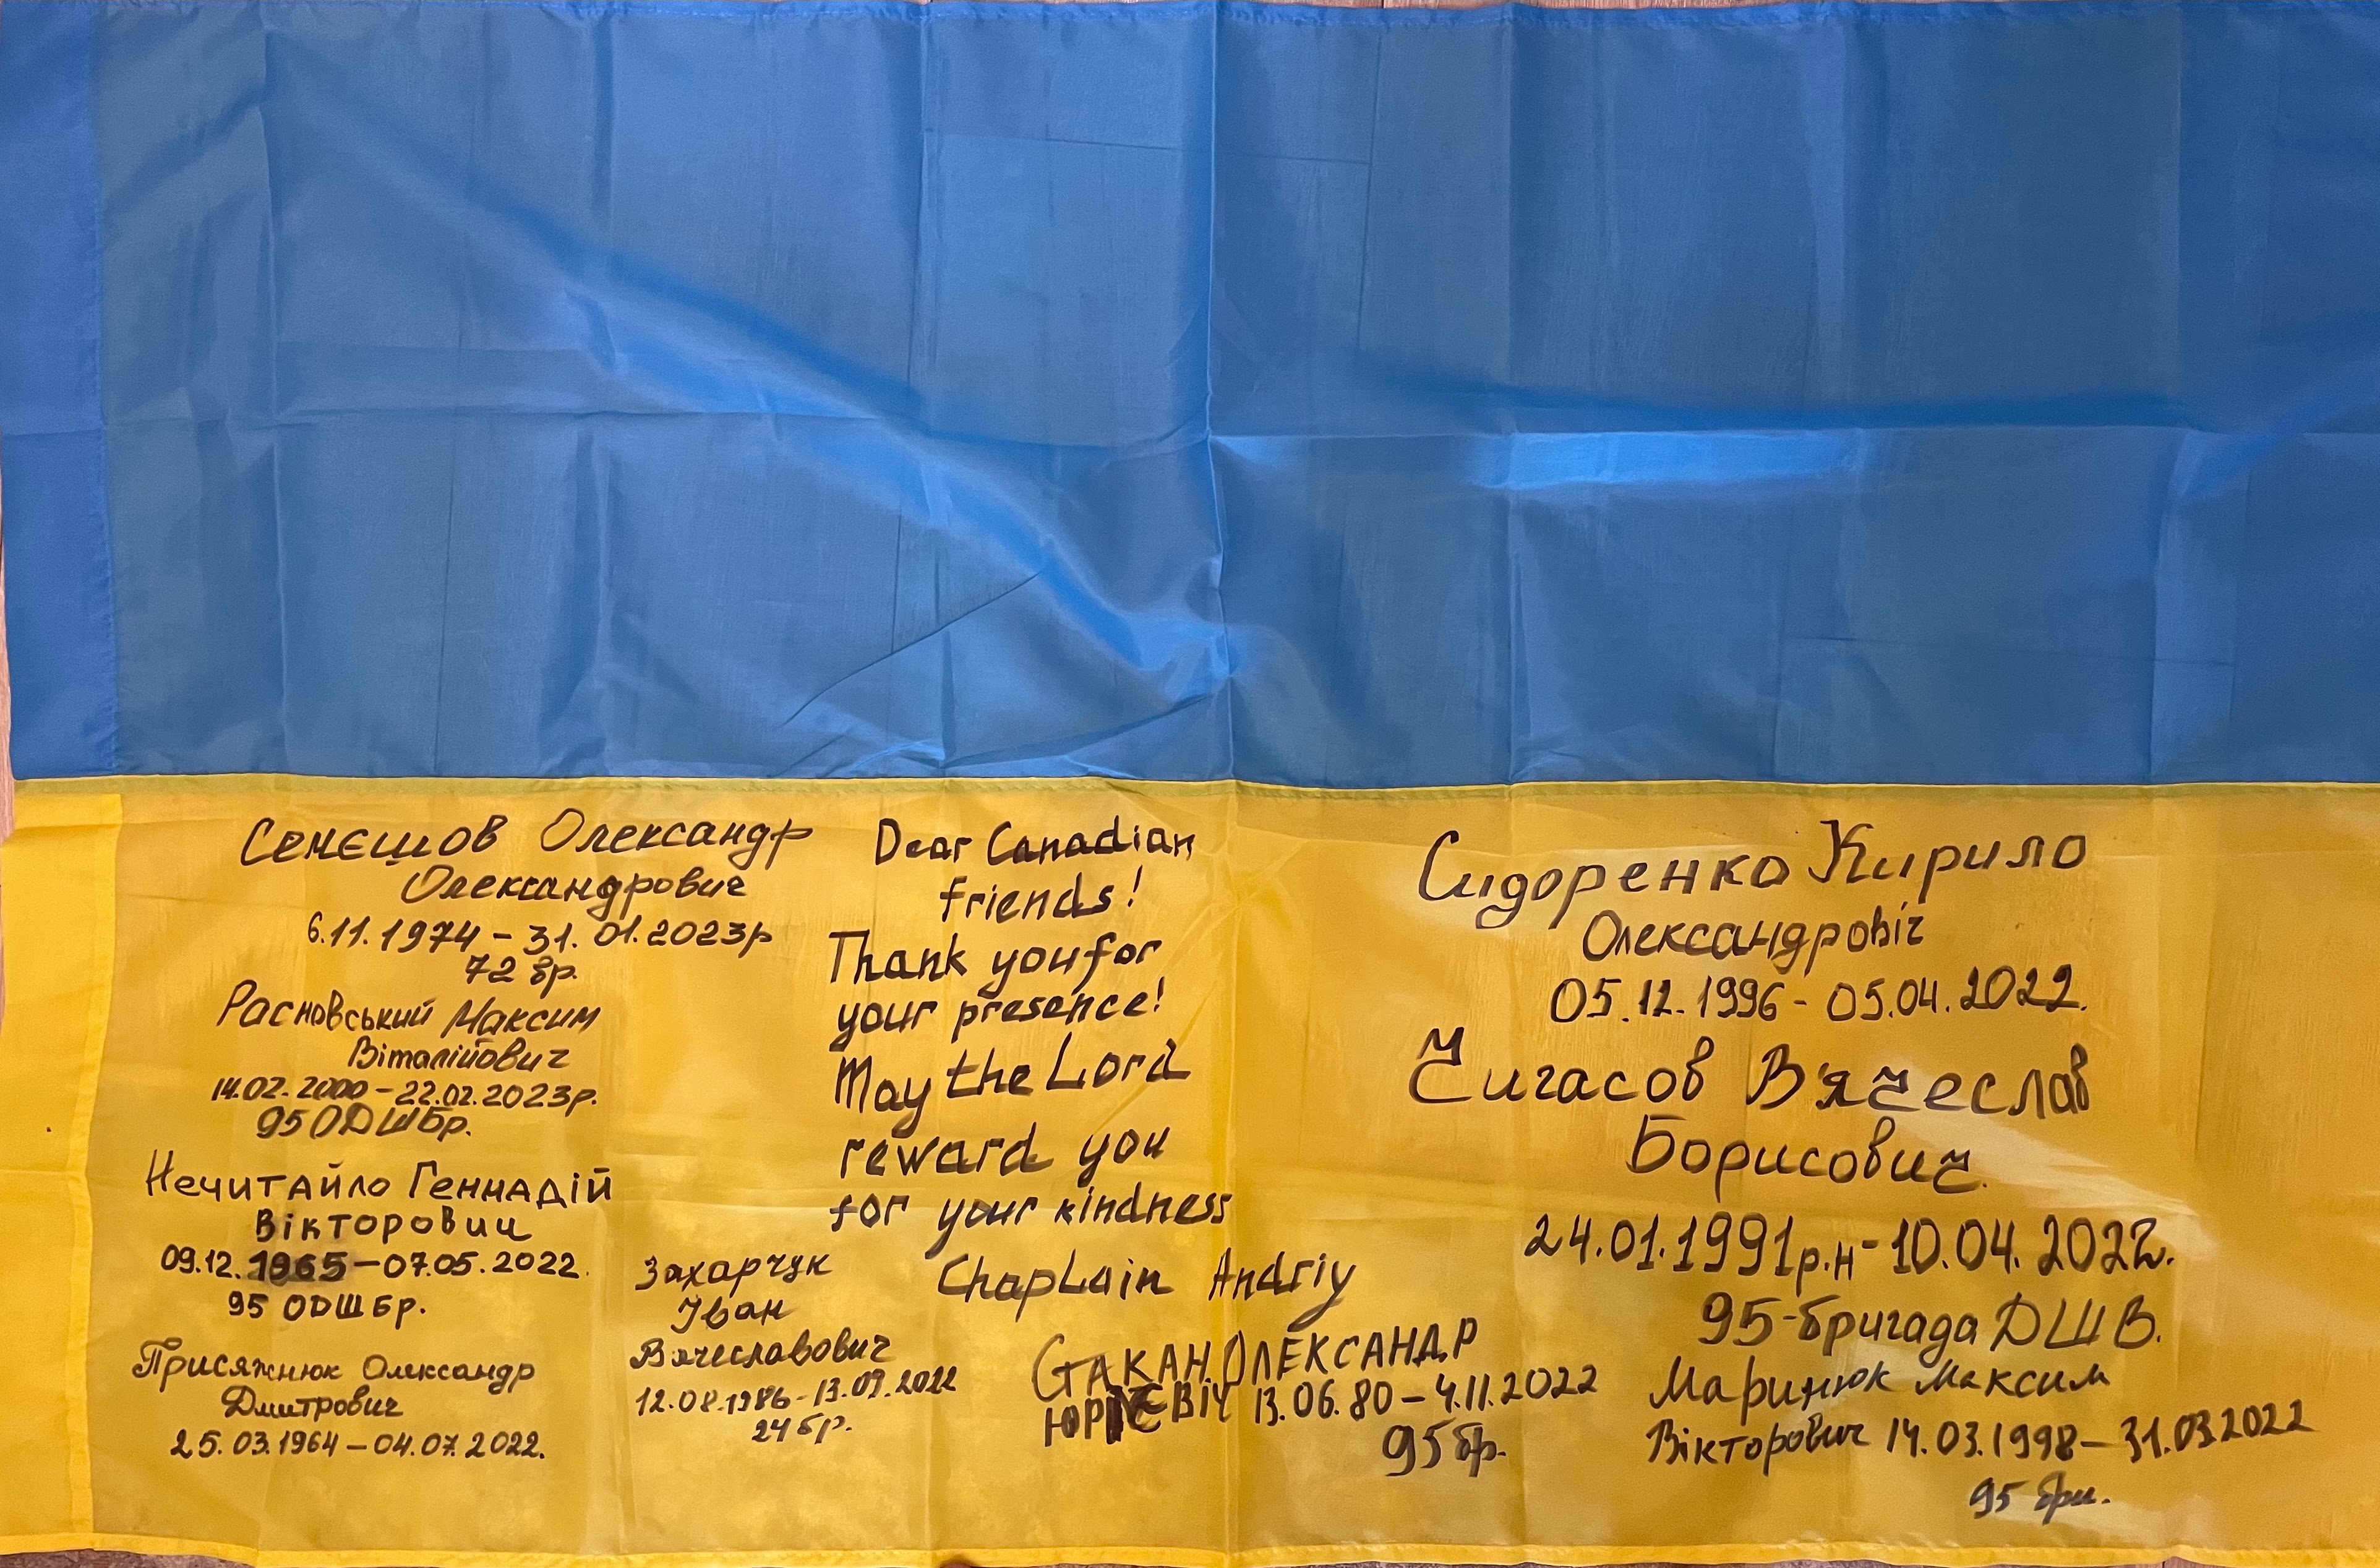 Сенєшов Олександр
Олександрович
6.11.1974 – 31.01.2023р
72 бр.
Расновський Максим
Віталійович
14.02.2000 – 22.02.2023р.
95 ОДШБр.
Нечитайло Геннадій
Вікторович
09.12.1965 – 07.05.2022.
95 ОДШБр.
Присяжнюк Олександр
Дмитрович
25.03.1964 – 04.07.2022.
Захарчук
Іван
Вячеславович
12.08.1986 – 13.09.2022
24 бр.
Dear Canadian
friends!
Thank you for
your presence!
May the Lord
reward you
for your kindness
Chaplain Andriy
ГАКАН ОЛЕКСАНДР
13.06.80 – 4.11.2022
95 бр.
Сидоренко Кирило
Олександровіч
05.12.1996 - 05.04.2022.
Чигасов В'ячеслав
Борисович.
24.01.1991р.н - 10.04.2022.
95-бригада ДШВ.
Маринюк Максим
Вікторович 14.03.1998 – 31.03.2022
95 бри.